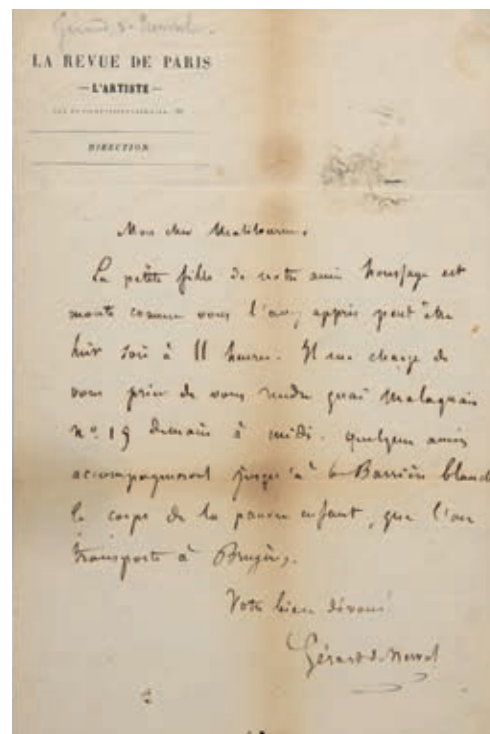 Gérard de Nerval.
LA REVUE DE PARIS
— L'ARTISTE —
DIRECTION
Mon cher Malitourne,
La petite fille de notre ami Houssaye est
morte comme vous l'avez appris peut être
hier soir à 11 heures. Il me charge de
vous prier de vous rendre quai Malaquais
n° 19 demain à midi. quelques amis
accompagneront jusqu'à la Barrière blanch
le corps de la pauvre enfant, que l'on
transporte à Bruyères.
Votre bien dévoué
Gérard de Nerval